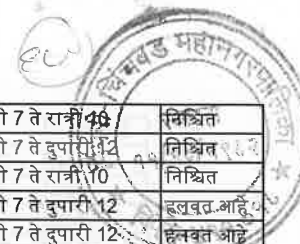 चिंचवड महानगरपालिका
ी 7 ते रात्री 10 निश्चित
ी 7 ते दुपारी 12 निश्चित
ी 7 ते रात्री 10 निश्चित
ी 7 ते दुपारी 12 हलवत आहे
ी 7 ते दुपारी 12 हलवत आहे